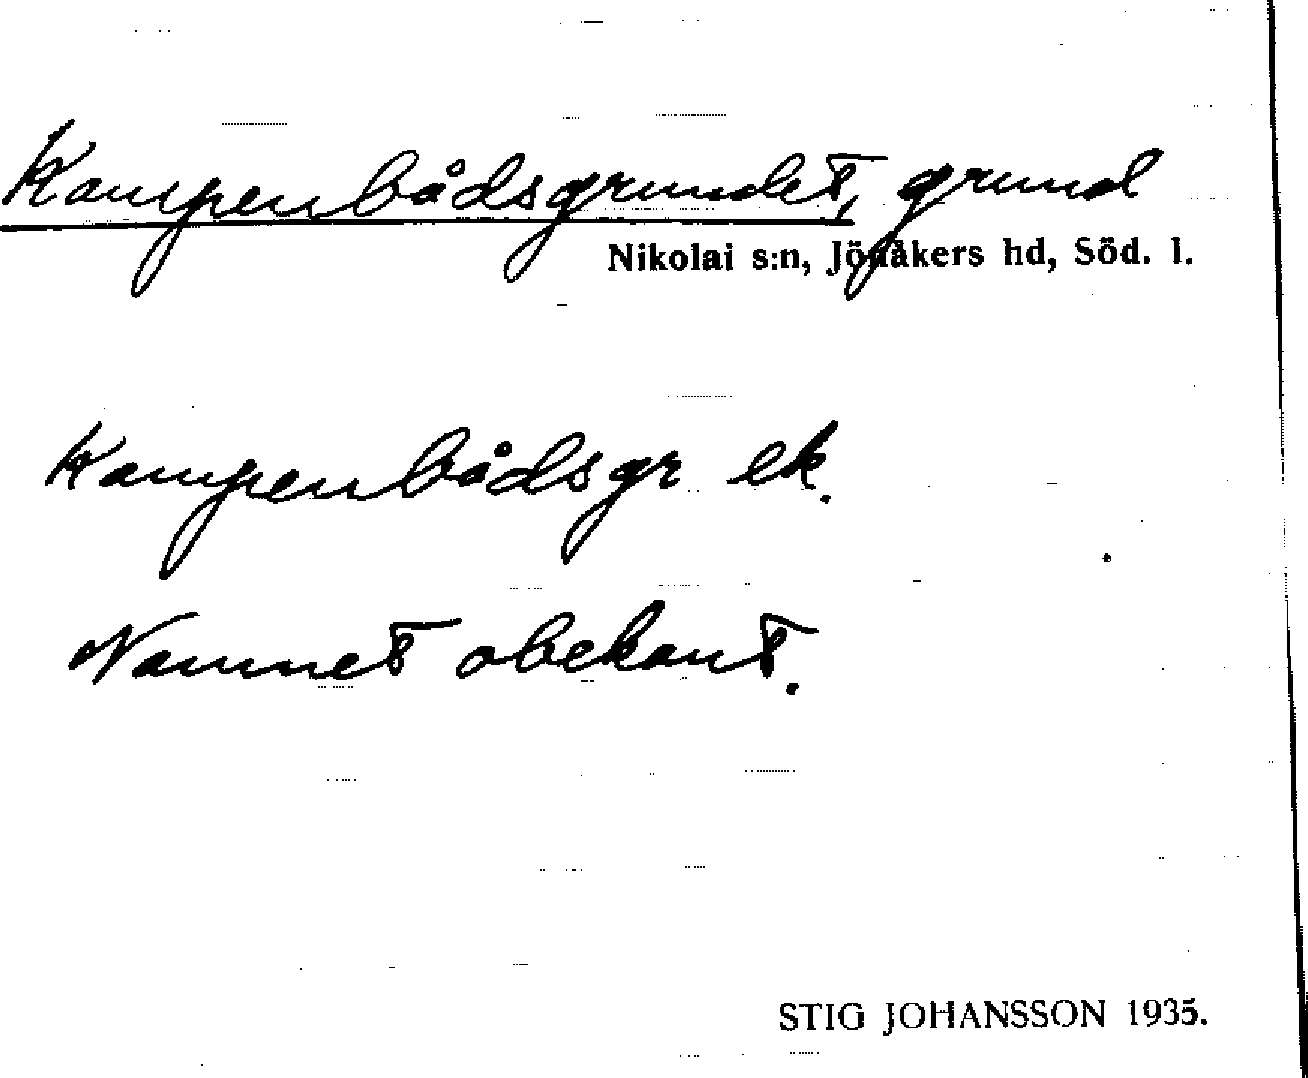 Kampenbådsgrundet, grund
Nikolai s:n, Jönåkers hd, Söd. l.
Kampenbådsgr ek.
Namnet obekant.
STIG JOHANSSON 1935.